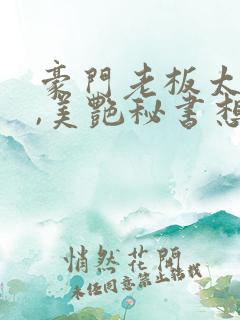 豪門老板太
,美艷秘書想
悄然花開
未经同意禁止转载